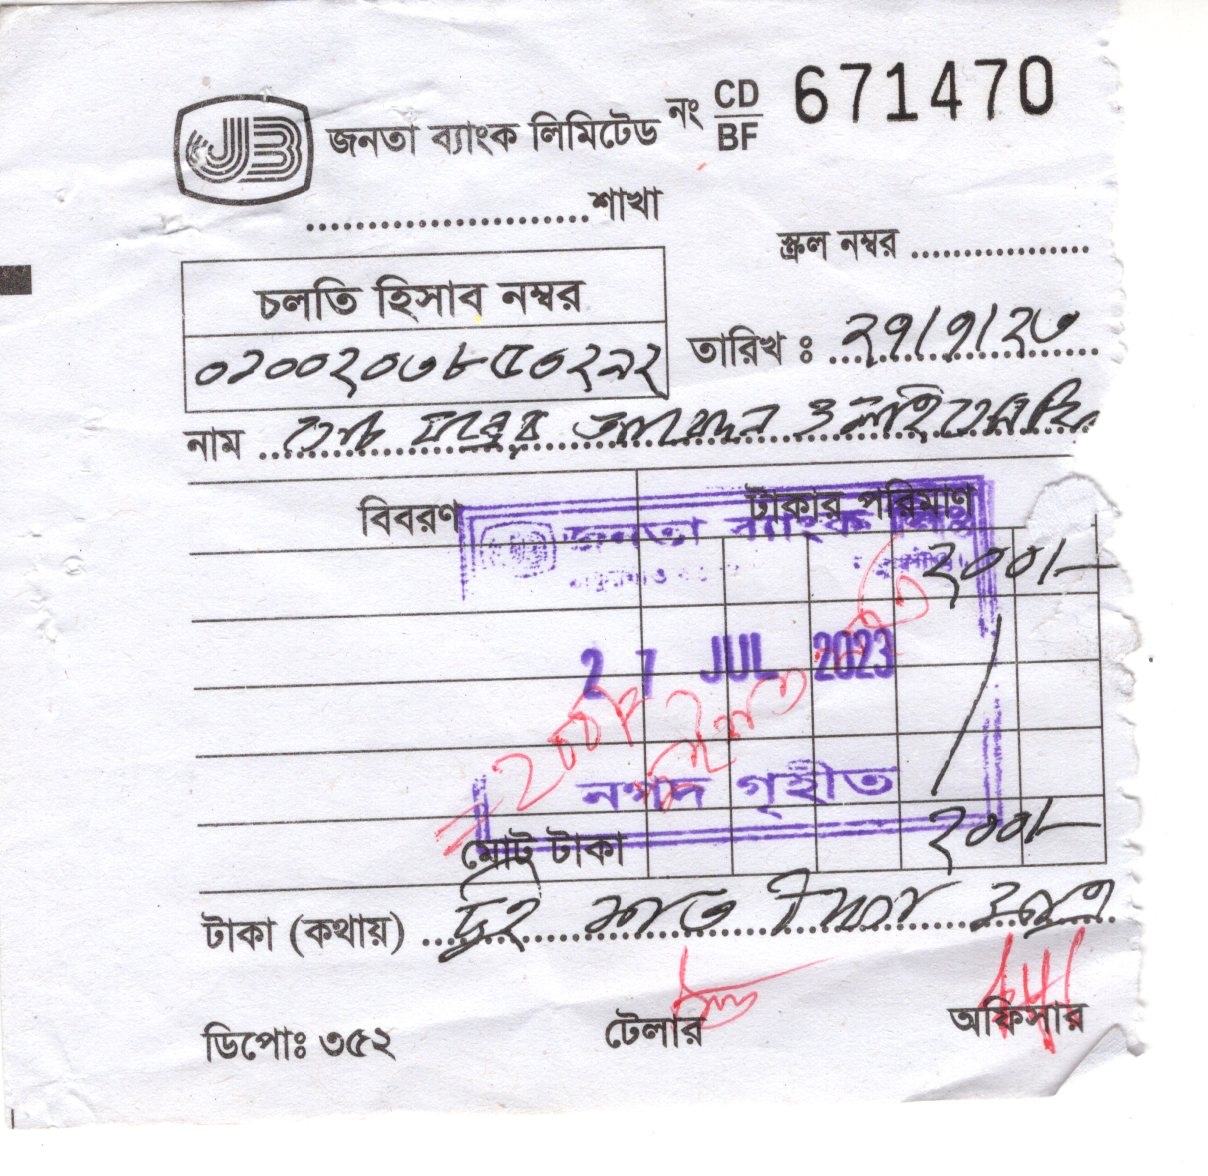 JB জনতা ব্যাংক লিমিটেড নং CD/BF 671470
......................শাখা
স্ক্রল নম্বর ..................
চলতি হিসাব নম্বর
তারিখ : ২৭/৭/২৩
০২০০২০৩৮৫৩২৯২
নাম
বিবরণ টাকার পরিমাণ
জনতা ব্যাংক লিঃ
২০০/-
27 JUL 2023
নগদ গৃহীত
মোট টাকা ২০০/-
টাকা (কথায়) দুই শত টাকা মাত্র
ডিপোঃ ৩৫২ টেলার অফিসার